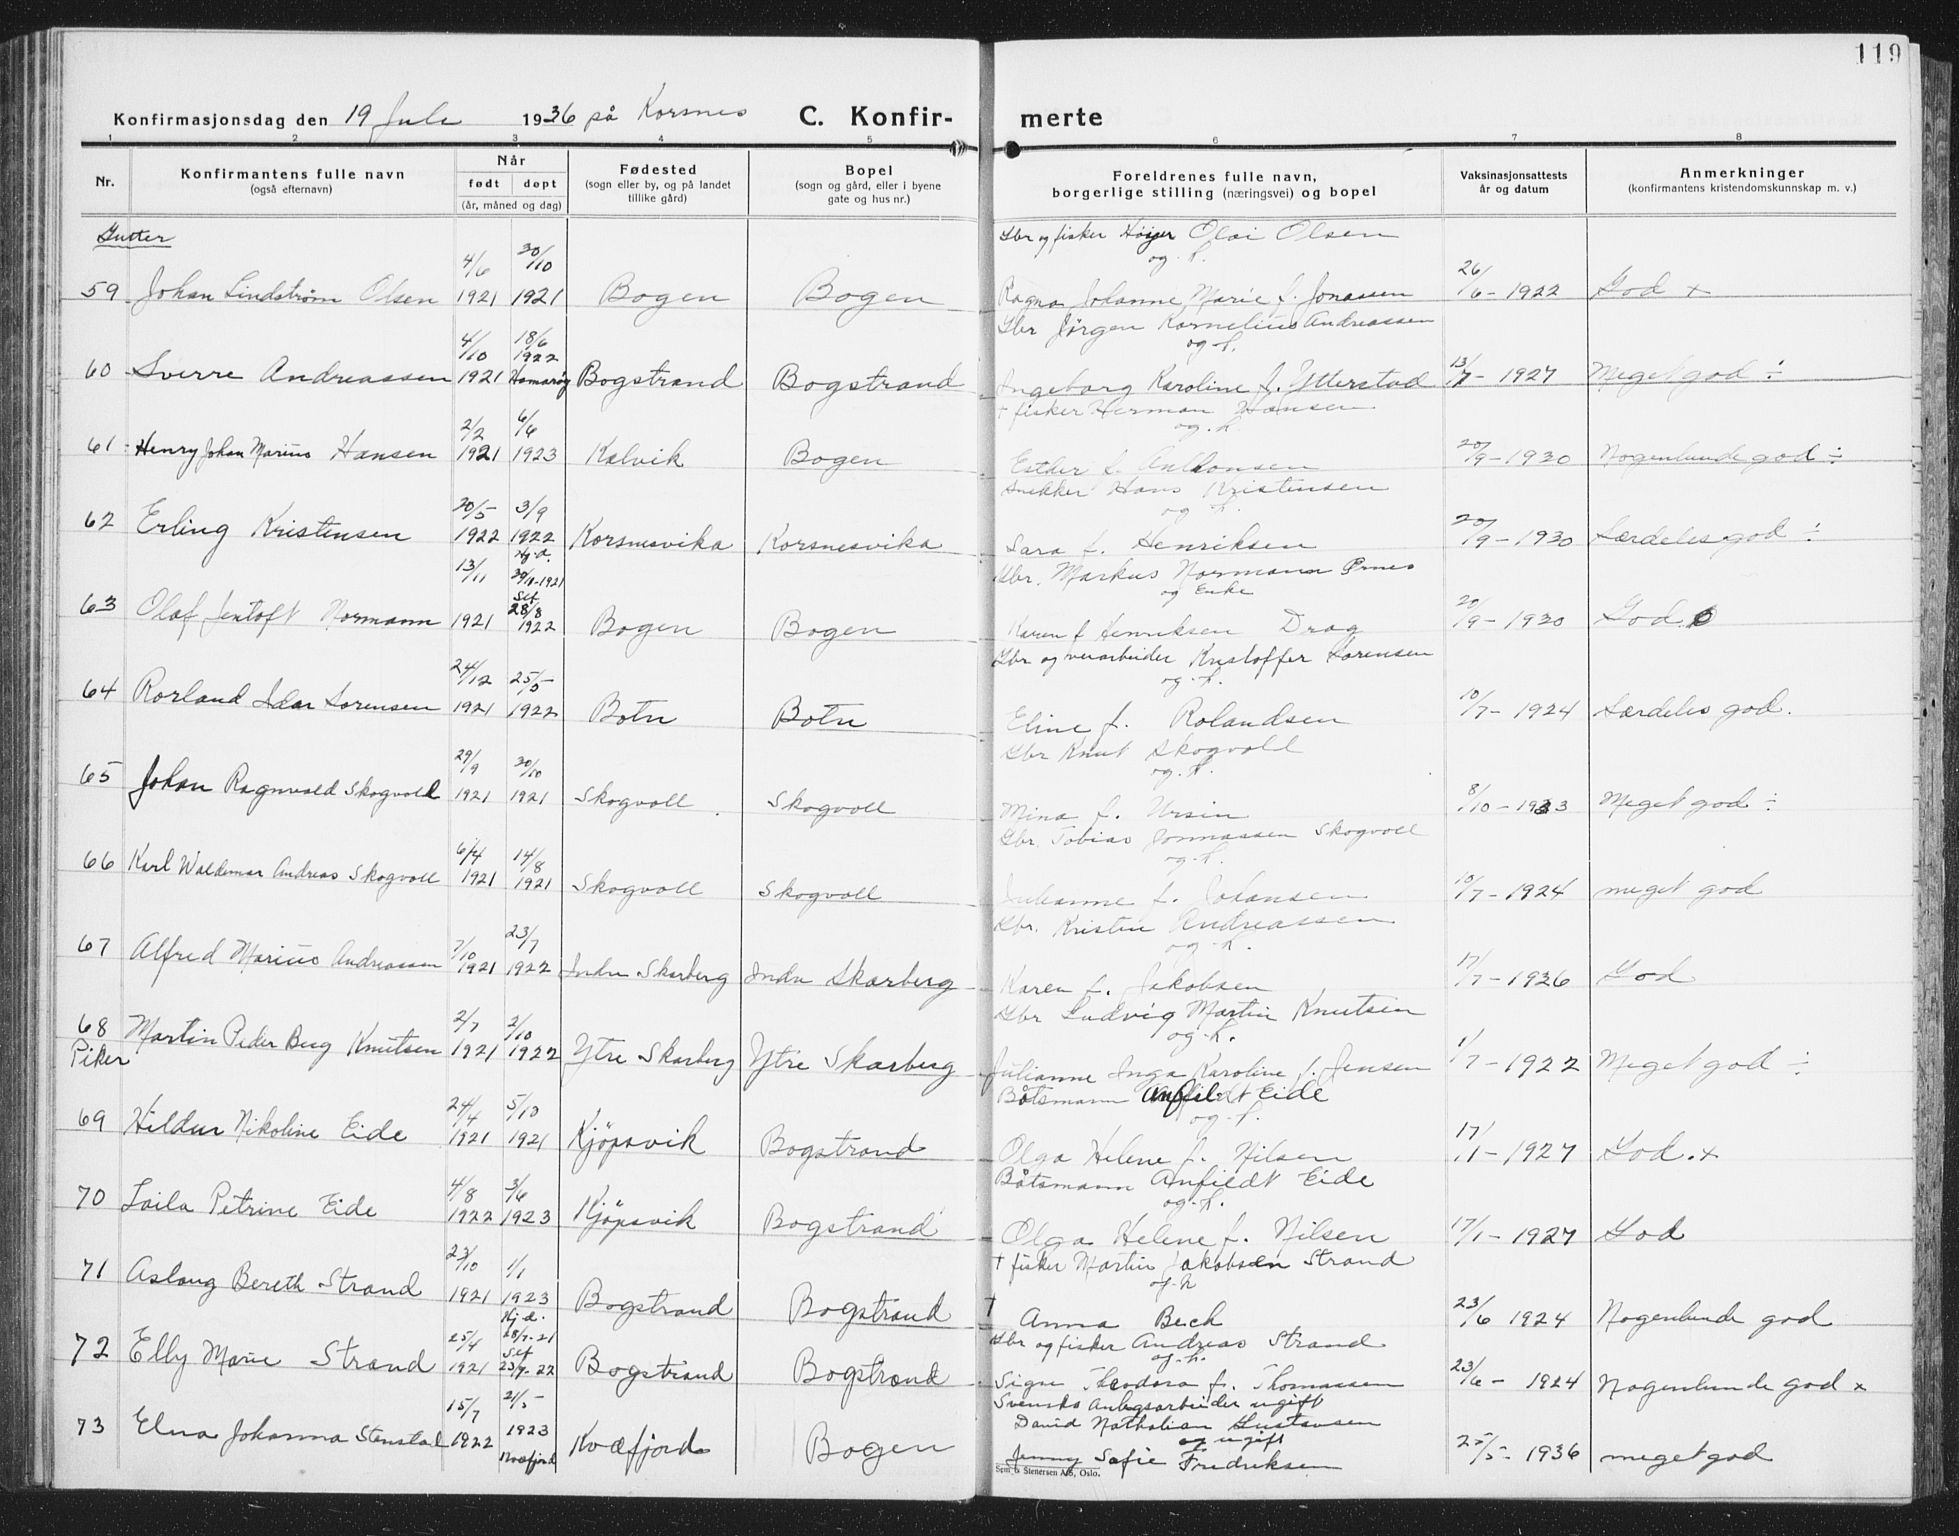 119
Konfirmasjonsdag den 19 Juli 1936 på Korsnes C. Konfir- merte
1 2 3 4 5 6 7 8
Nr. Konfirmantens fulle navn (også efternavn) Når født døpt (år, måned og dag) Fødested (sogn eller by, og på landet tillike gård) Bopel (sogn og gård, eller i byene gate og hus nr.) Foreldrenes fulle navn, borgerlige stilling (næringsvei) og bopel Vaksinasjonsattests år og datum Anmerkninger (konfirmantens kristendomskunnskap m. v.)
Gutter
Gbr og fisker Höyer Olai Olsen
og h.
59 Johan Lindstrøm Olsen 4/6 1921 30/10 1921 Bogen Bogen Ragna Johanne Marie f. Jonassen 26/6-1922 God +
Gbr Jörgen Kornelius Andreassen
og h.
60 Sverre Andreassen 4/10 1921 18/6 1922 Hamarøy Bogstrand Bogstrand Ingeborg Karoline f. Ytterstad 13/7-1927 Meget god ÷
+ fisker Herman Hansen
og h.
61 Henry Johan Marius Hansen 2/2 1921 6/6 1923 Kalvik Bogen Esther f. Anthonsen 20/9-1930 Nogenlunde god ÷
Snekker Hans Kristensen
og h.
62 Erling Kristensen 20/5 1922 3/9 1922 Korsnesvika Korsnesvika Sara f. Henriksen 20/9-1930 Særdeles god ÷
Gbr. Markus Normann
og Enke
63 Olaf Jentoft Normann 13/11 1921 Hj.d. 30/11-1921 Stf 28/8 1922 Bogen Bogen Karen f Henriksen Drag 20/9-1930 God.
Gbr og veiarbeider Kristoffer Sørensen
og h.
64 Rorland Idar Sorensen 24/12 1921 25/5 1922 Botn Botn Eline f. Rolandsen 10/7-1924 Særdeles god.
Gbr Knut Skogvoll
og h.
65 Johan Ragnvald Skogvoll 29/9 1921 30/10 1921 Skogvoll Skogvoll Mina f. Ursin 8/10-1933 Meget god ÷
Gbr. Tobias Jonnassen Skogvoll
og h.
66 Karl Waldemar Andreas Skogvoll 6/4 1921 14/8 1921 Skogvoll Skogvoll Julianne f. Johansen 10/7-1924 meget god
Gbr. Kristen Andreassen
og h.
67 Alfred Marius Andreassen 7/10 1921 23/7 1922 Indre Skarberg Indre Skarberg Karen f. Jakobsen 17/7-1936 God
Gbr Ludvig Martin Knutsen
og h.
68 Martin Peder Berg Knutsen 2/7 1921 2/10 1922 Ytre Skarberg Ytre Skarberg Julianne Inga Karoline f. Jensen 1/7-1922 Meget god ÷
Piker
Båtsmann Anfildt Eide
og h.
69 Hildur Nikoline Eide 24/4 1921 5/10 1921 Kjöpsvik Bogstrand Olga Helene f. Nilsen 17/1-1927 God. +
Båtsmann Anfildt Eide
og h.
70 Laila Petrine Eide 4/8 1922 3/6 1923 Kjöpsvik Bogstrand Olga Helene f. Nilsen 17/1-1927 God
+ fisker Martin Jakobsen Strand
og h
71 Aslaug Bereth Strand 23/10 1921 1/1 1923 Bogstrand Bogstrand + Anna Beck 23/6 1924 Nogenlunde god
Gbr og fisker Andreas Strand
og h.
72 Elly Marie Strand 25/4 1921 Hj.d. 28/7-21 Stf 23/7-22 Bogstrand Bogstrand Signe Theodora f. Thomassen 23/6-1924 Nogenlunde god +
Svenske Anlegsarbeider ugift
David Nathalian Gustavsen
og ugift
73 Elna Johanna Stenstad 15/7 1922 21/5 1923 Kvæfjord Kvæfjord Bogen Jenny Sofie Fredriksen 25/5-1936 meget god
Sem & Stenersen A/S, Oslo.